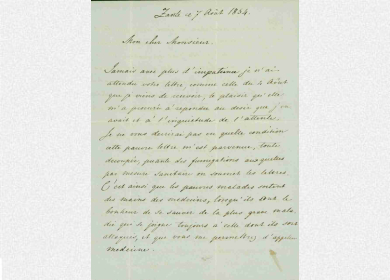 Zante le 7 Août 1854.
Mon cher Monsieur.
Jamais avec plus d'impatience je n'ai
attendu votre lettre, comme celle du 4 Août
que je viens de recevoir, le plaisir qu'elle
m'a procuré a répondu au désir que j'en
avait et à l'inquietude de l'attente.
Je ne vous decrirai pas en quelle condition
cette pauvre lettre m'est parvenue, toute
decoupée, puante des fumigations auxquelles
par mesure sanitaire on soumet les lettres.
C'est ainsi que les pauvres malades sortent
des mains des medecins, lorsqu'ils ont le
bonheur de se sauver de la plus grave mala
die qui se joigne toujours à celle dont ils sont
attaqués, et que vous me permettrez d'appeler
medecine.